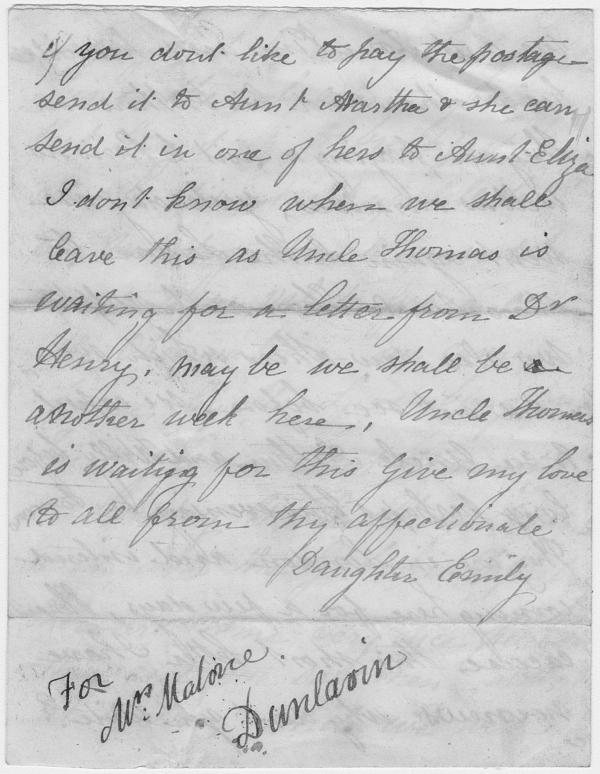 if you dont like to pay the postage
send it to Aunt Martha & she can
send it in one of hers to Aunt Eliza
I dont know when we shall
leave this as Uncle Thomas is
waiting for a letter from Dr
Henry, may be we shall be
another week here, Uncle Thomas
is waiting for this Give my love
to all from thy affectionate
Daughter Emily
For
Mrs. Malone.
Dunlavin